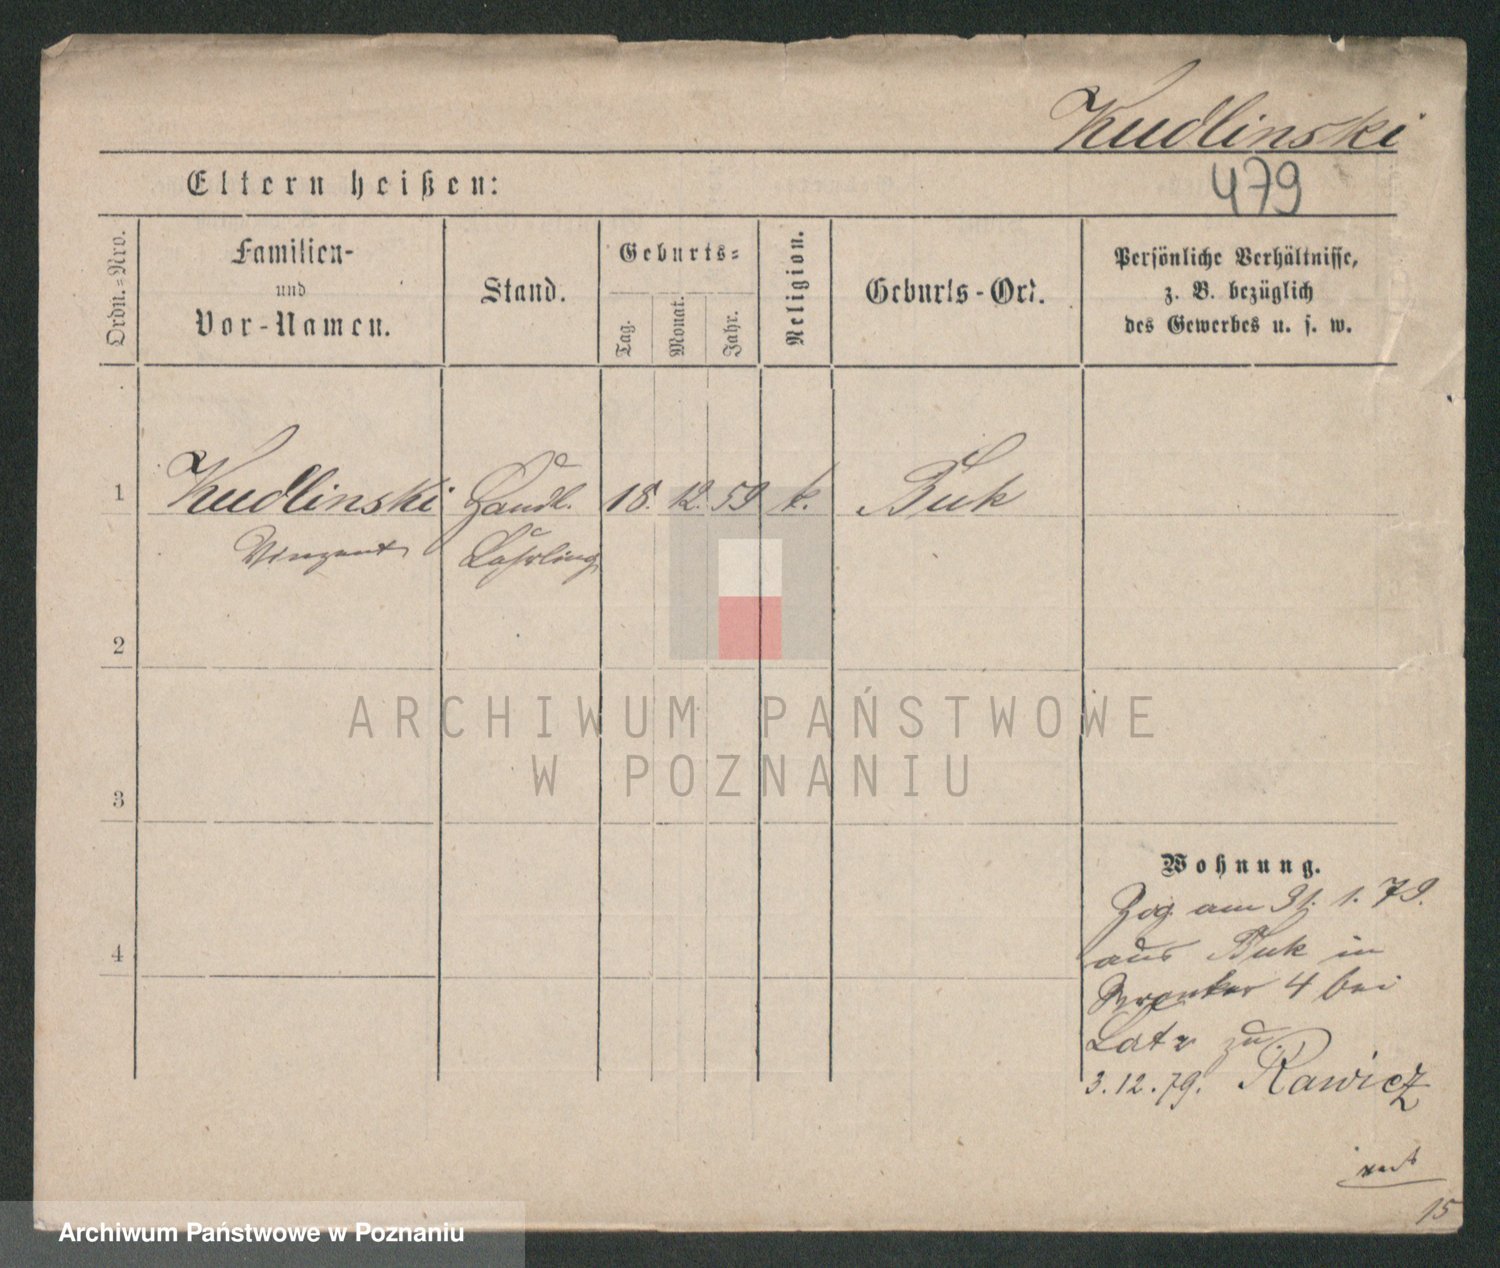 Kudlinski
479
Eltern heißen:
Ordn.=Nro.
Familien-
und
Vor-Namen.
Stand.
Geburts=
Tag.
Monat.
Jahr.
Religion.
Geburts-Ort.
Persönliche Verhältnisse,
z. B. bezüglich
des Gewerbes u. s. w.
1
Kudlinski Handl. 18. 12. 59 k. Buk
Vinzent Lehrling
2
3
4
Wohnung.
Zog am 31. 1. 79.
aus Buk in
4 bei
zu
3.12.79. Rawicz
15
ARCHIWUM PAŃSTWOWE
W POZNANIU
Archiwum Państwowe w Poznaniu